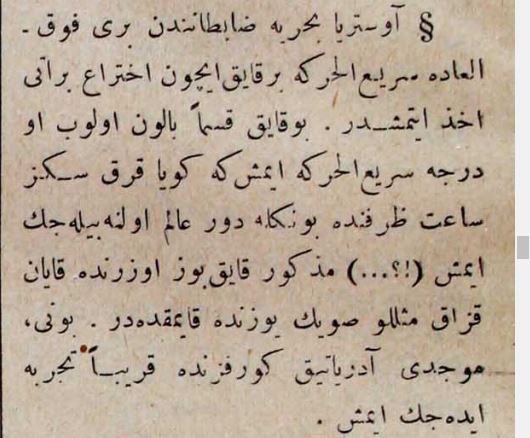 § آوستریا بحریه ضابطانندن بری فوق ـ
العاده سریع‌الحرکه برقایق‌ایچون اختراع براتی
اخذ ایتمشـدر . بوقایق قسماً بالون اولوب او
درجه سریع‌الحرکه ایمش‌که کویا قرق سکز
ساعت ظرفنده بونکله دور عالم اولنه‌بیله‌جك
ایمش (!؟...) مذکور قایق‌بوز اوزرنده قایان
قزاق مثللو صویك یوزنده قایمقده‌در . بونی،
موجدی آدریاتیق کورفزنده قریباً تجربه
ایده‌جك ایمش .